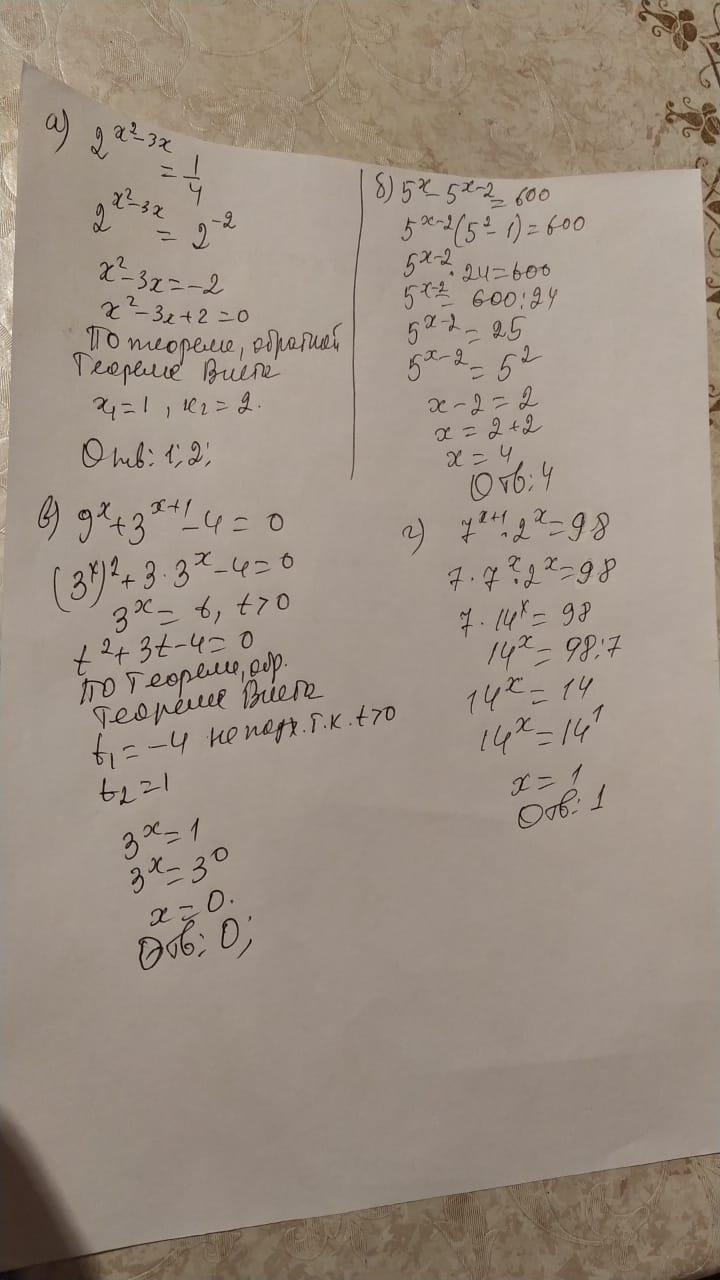 а) 2^{x²-3x} = 1/4
2^{x²-3x} = 2^{-2}
x²-3x=-2
x²-3x+2=0
По теореме, обратной
Теореме Виета
x₁=1, x₂=2.
Отв: 1; 2;
б) 5^x - 5^{x-2} = 600
5^{x-2}(5²-1)=600
5^{x-2}·24=600
5^{x-2}= 600:24
5^{x-2}= 25
5^{x-2}= 5²
x-2=2
x=2+2
x=4
Отв: 4
в) 9^x+3^{x+1}-4=0
(3^x)²+3·3^x-4=0
3^x= t, t>0
t²+3t-4=0
По Теореме, обр.
Теореме Виета
t₁=-4 не подх. т.к. t>0
t₂=1
3^x=1
3^x=3^0
x=0.
Отв: 0;
г) 7^{x+1}·2^x=98
7·7^x·2^x=98
7·14^x=98
14^x=98:7
14^x=14
14^x=14^1
x=1
Отв: 1